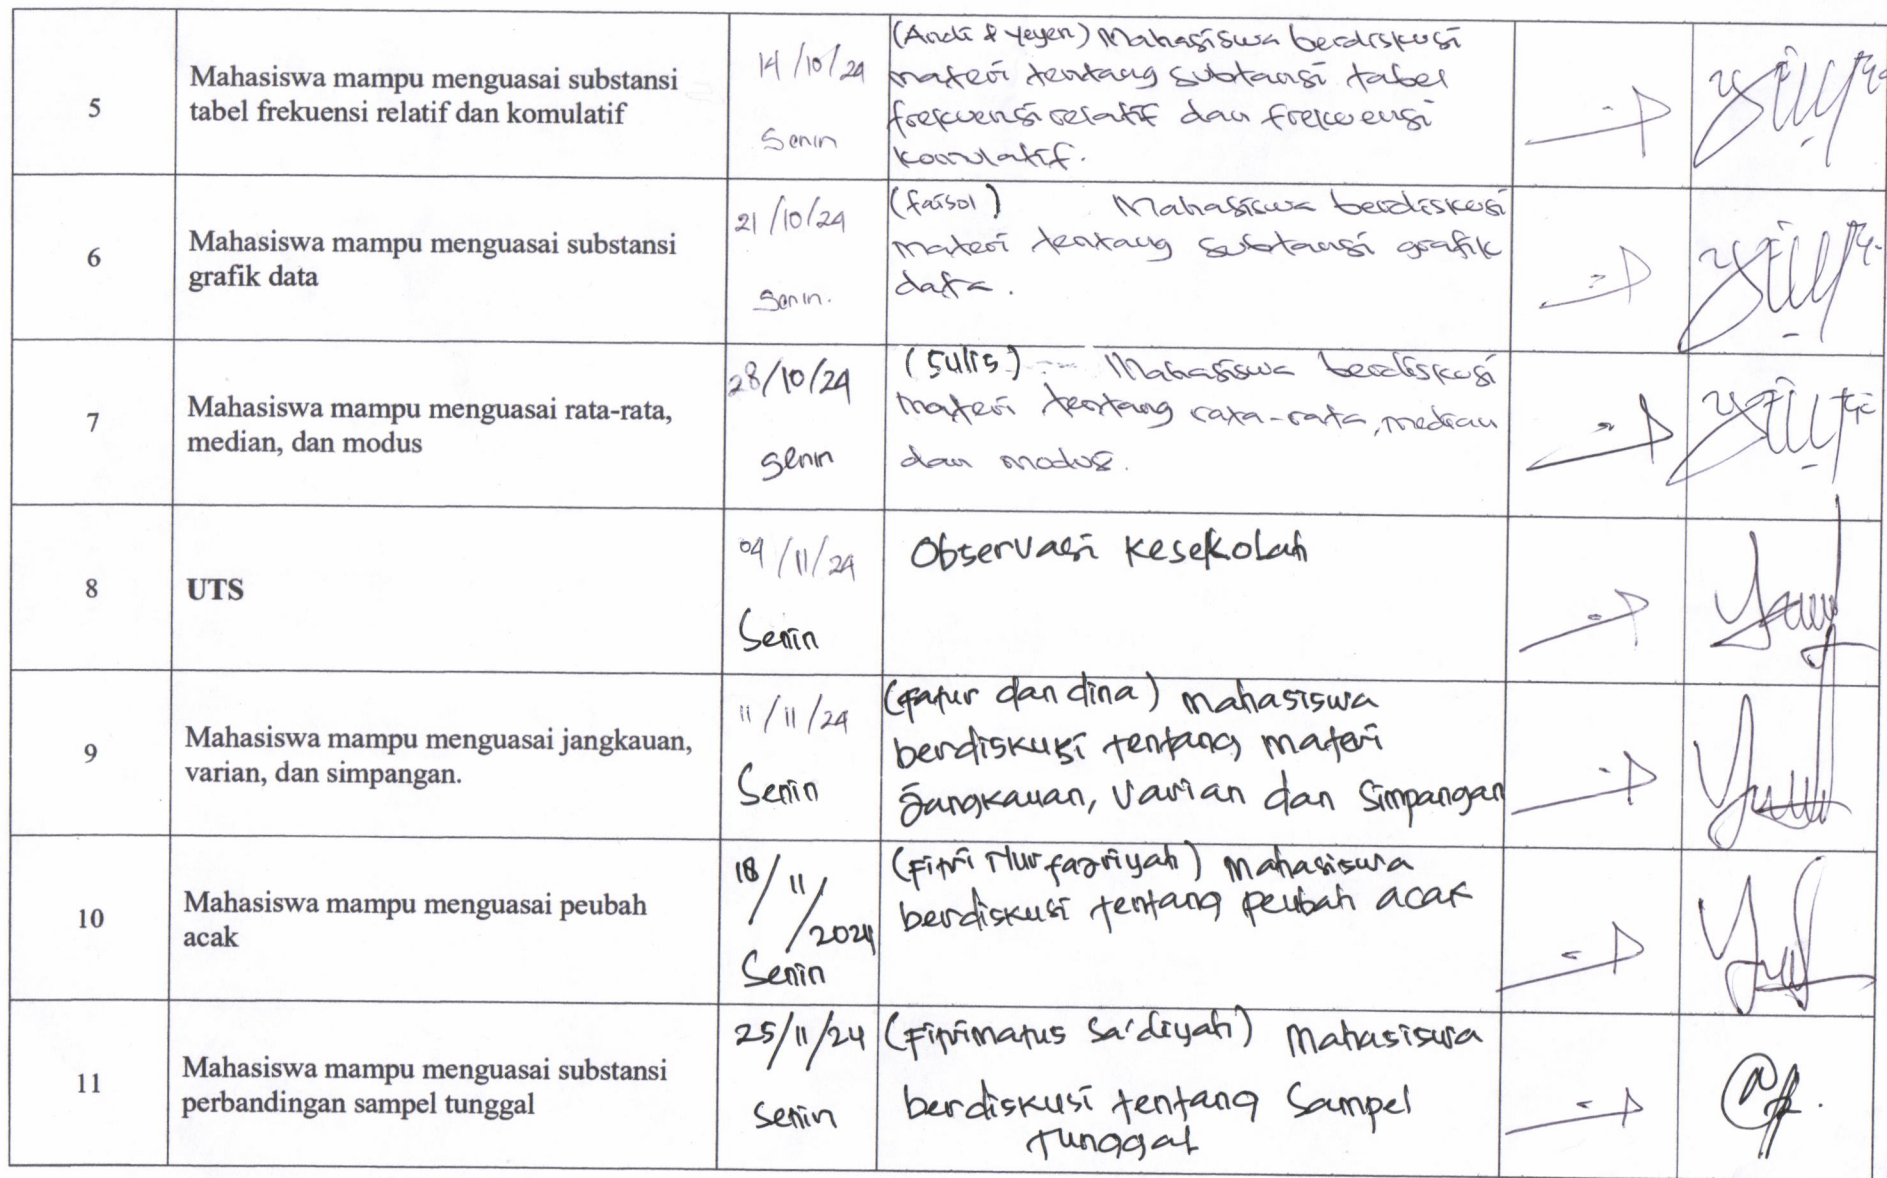 5
Mahasiswa mampu menguasai substansi
tabel frekuensi relatif dan komulatif
14/10/24
Senin
(Andi & Yeyen) Mahasiswa berdiskusi
materi tentang substansi tabel
frekuensi relatif dan frekuensi
komulatif.
6
Mahasiswa mampu menguasai substansi
grafik data
21/10/24
Senin.
(faisol) Mahasiswa berdiskusi
materi tentang substansi grafik
data.
7
Mahasiswa mampu menguasai rata-rata,
median, dan modus
28/10/24
Senin
(Sulis) Mahasiswa berdiskusi
materi tentang rata-rata, median
dan modus.
8
UTS
04/11/24
Senin
Observasi kesekolah
9
Mahasiswa mampu menguasai jangkauan,
varian, dan simpangan.
11/11/24
Senin
(Fatur dan dina) Mahasiswa
berdiskusi tentang materi
jangkauan, varian dan Simpangan
10
Mahasiswa mampu menguasai peubah
acak
18/11/2024
Senin
(Fitri Nur fajriyah) Mahasiswa
berdiskusi tentang peubah acak
11
Mahasiswa mampu menguasai substansi
perbandingan sampel tunggal
25/11/24
Senin
(Fitrimatus Sa'diyah) Mahasiswa
berdiskusi tentang Sampel
tunggal